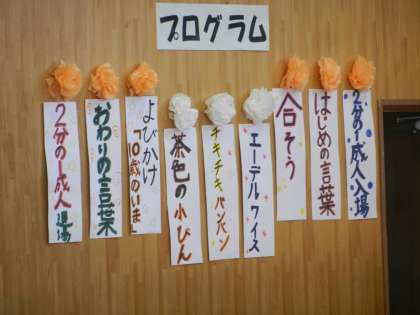 プログラム
2分の1成人入場
はじめの言葉
合そう
エーデルワイス
チキチキバンバン
茶色の小びん
よびかけ
「10歳のいま」
おわりの言葉
2分の1成人退場